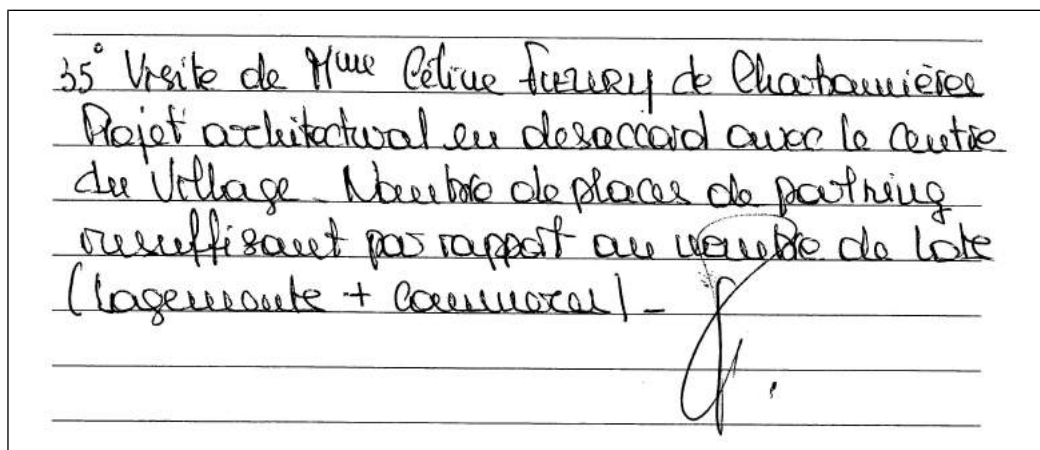 35° Visite de Mme Céline FLEURY de Charbonnières
Projet architectural en desaccord avec le centre
du Village. Nombre de places de parking
insuffisant par rapport au nombre de lots
(Logements + Commerces) -